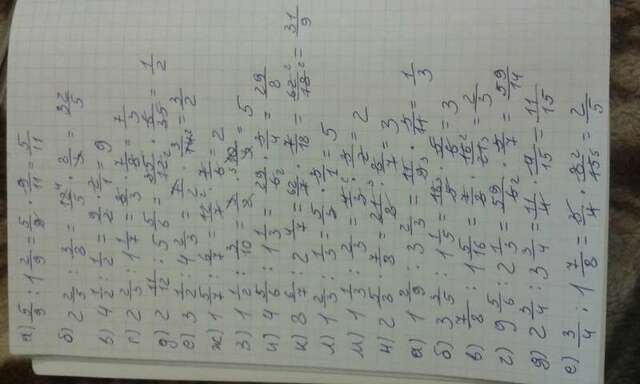 а) 5/9 : 1 2/9 = 5/9 · 9/11 = 5/11
б) 2 2/5 : 3/8 = 12/5 · 8/3 = 32/5
в) 4 1/2 : 1/2 = 9/2 · 2/1 = 9
г) 2 2/3 : 1 1/7 = 8/3 · 7/8 = 7/3
д) 2 11/12 : 5 5/6 = 35/12 · 6/35 = 1/2
е) 3 1/2 : 4 2/3 = 7/2 · 3/14 = 3/2
ж) 1 5/7 : 6/7 = 12/7 · 7/6 = 2
з) 1 1/2 : 3/10 = 3/2 · 10/3 = 5
и) 4 5/6 : 1 1/3 = 29/6 · 3/4 = 29/8
к) 8 6/7 : 2 4/7 = 62/7 · 7/18 = 62/18 = 31/9
л) 1 2/3 : 1/3 = 5/3 · 3/1 = 5
м) 1 1/3 : 2/3 = 4/3 · 3/2 = 2
н) 2 5/8 : 7/8 = 21/8 · 8/7 = 3
а) 1 2/9 : 3 2/3 = 11/9 · 3/11 = 1/3
б) 3 3/5 : 1 1/5 = 18/5 · 5/6 = 3
в) 7/8 : 1 5/16 = 7/8 · 16/21 = 2/3
г) 9 5/6 : 2 1/3 = 59/6 · 3/7 = 59/14
д) 2 3/4 : 3 3/4 = 11/4 · 4/15 = 11/15
е) 3/4 : 1 7/8 = 3/4 · 8/15 = 2/5